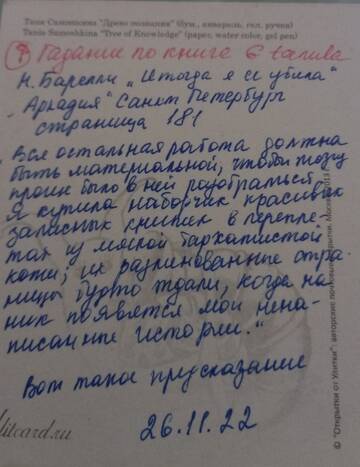 Таня Самошкина "Древо познания" (бум., акварель, гел. ручка)
Tania Samoshkina "Tree of Knowledge" (paper, water color, gel pen)
Гадание по книге
Н. Барелли „И тогда я ее убила"
Аркадия" Санкт Петербург
страница 181
„Вся остальная работа должна
быть материальной, чтобы
было в ней разобраться.
Я купила наборчик красивых
записных книжек в перепле-
тах из мягкой бархатистой
кожи; их разлинованные стра-
ницы будто ждали, когда на
них появятся мои нена-
писанные истории."
Вот такое предсказание
26.11.22
litcard.ru
© "Открытки от Улитки"- авторские почтовые открытки. Москва 2013